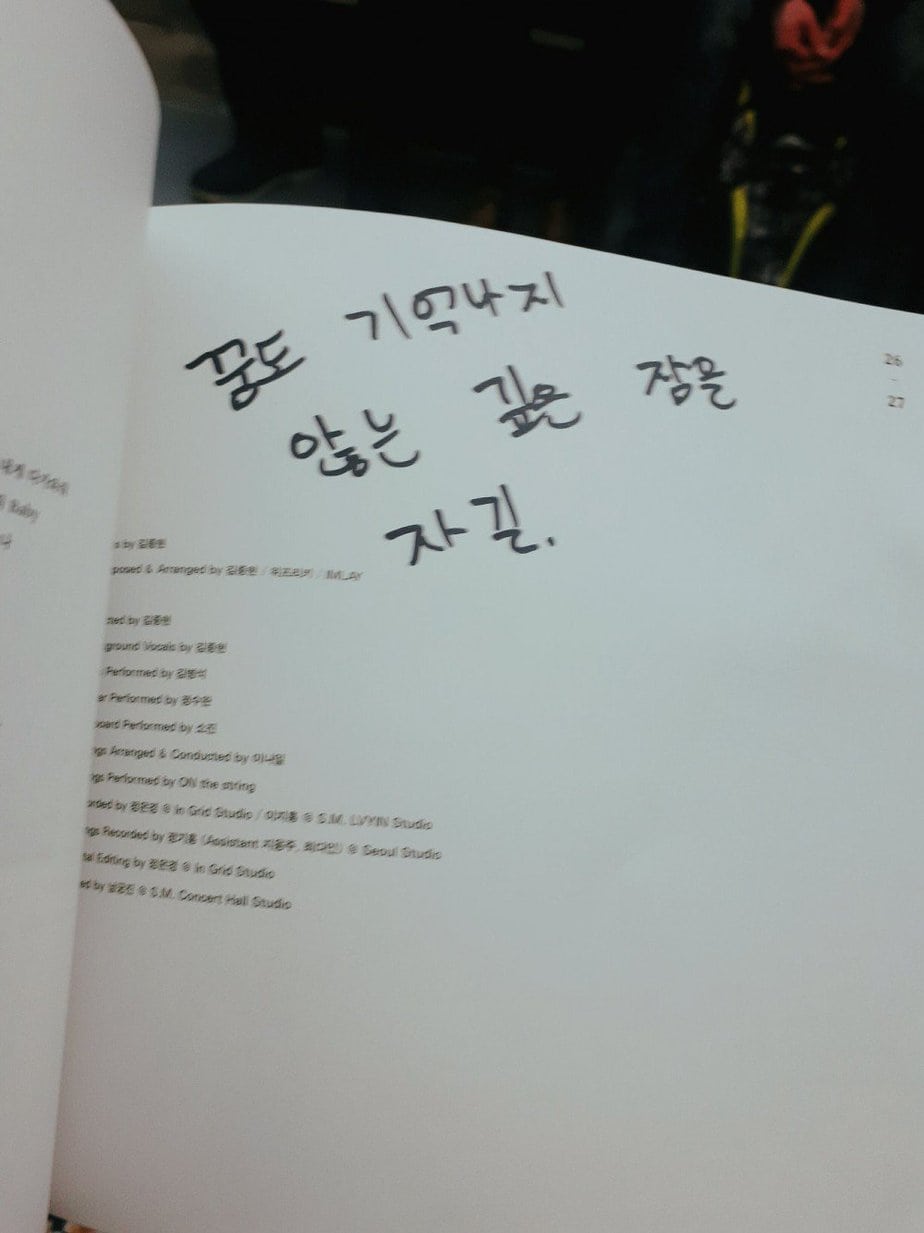 꿈도 기억나지
않는 깊은 잠을
자길.
26
-
27
Baby
나
s by 김종현
posed & Arranged by 김종현 / 위프리키 / IMLAY
cted by 김종현
ground Vocals by 김종현
Performed by
er Performed by 정수완
board Performed by 소진
ngs Arranged & Conducted by 이나일
ngs Performed by ON the string
orded by 정은경 @ In Grid Studio / 이지홍 @ S.M. LVYIN Studio
ngs Recorded by 정기홍 (Assistant 지용주, 최다인) @ Seoul Studio
tal Editing by 정은경 @ In Grid Studio
ed by 남궁진 @ S.M. Concert Hall Studio